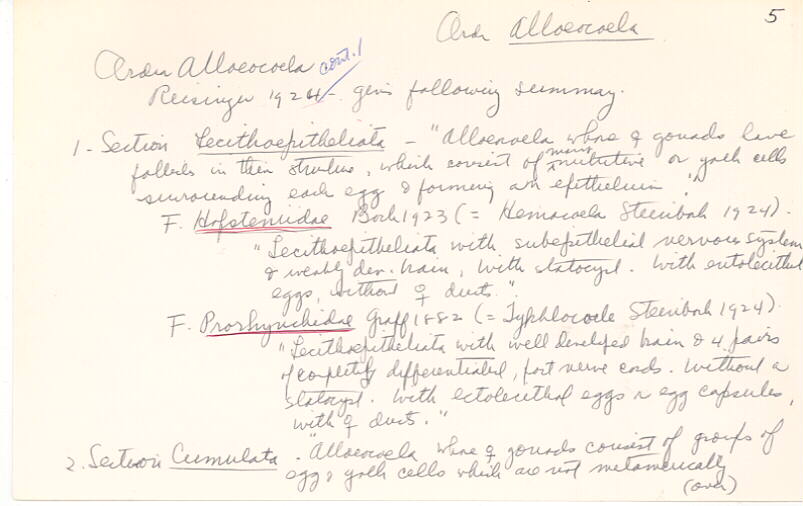 5
Order Alloeocoela
Order Alloeocoela cont.
Reisinger 1924 - gives following summary.
1 - Section Lecithoepitheliata - "Alloeocoela whose ♀ gonads have
follicles in their structure, which consist of many nutritive or yolk cells
surrounding each egg & forming an epithelium."
F. Hofsteniidae Bock 1923 (= Hemiacoela Steinbok 1924).
"Lecithoepitheliata with subepithelial nervous system
& weakly dev. brain, with statocyst. With entolecithal
eggs, without ♀ ducts."
F. Prorhynchidae Graff 1882 (= Typhlocoele Steinbok 1924).
"Lecithoepitheliata with well developed brain & 4 pairs
of completely differentiated, nerve cords. Without a
statocyst. With ectolecithal eggs egg capsules,
with ♀ ducts."
2. Section Cumulata - "Alloeocoela whose ♀ gonads consist of groups of
egg & yolk cells which are not metamerically
(over)